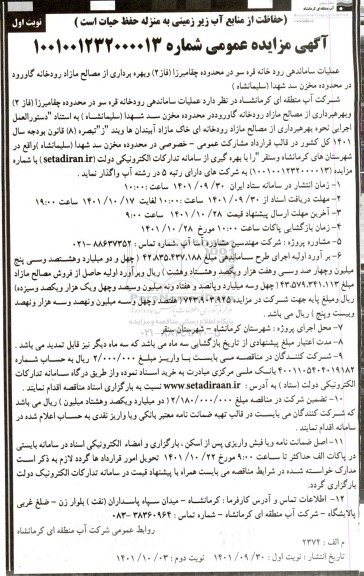 (حفاظت از منابع آب زیر زمینی به منزله حفظ حیات است)
نوبت اول
آگهی مزایده عمومی شماره ۱۰۰۱۰۰۱۲۳۲۰۰۰۰۱۳
عملیات ساماندهی رودخانه قره سو در محدوده چقامیرزا (فاز ۲) وبهره برداری از مصالح مازاد رودخانه گاورود
در محدوده مخزن سد شهدا (سلیمانشاه)
شرکت آب منطقه ای کرمانشاه در نظر دارد عملیات ساماندهی رودخانه قره سو در محدوده چقامیرزا (فاز ۲)
وبهره‌برداری از مصالح مازاد رودخانه گاوروددر محدوده مخزن سد شهدا (سلیمانشاه) به استناد "دستورالعمل
اجرایی نحوه بهره‌برداری از مصالح مازاد رودخانه ای خاک مازاد آببندان ها وبند "ز"تبصره (۸) قانون بودجه سال
۱۴۰۱ کل کشور در قالب قرارداد مشارکت عمومی - خصوصی در محدوده مخزن سد شهدا (سلیمانشاه )واقع در
شهرستان های کرمانشاه وسنقر "را با بهره گیری از سامانه تدارکات الکترونیکی دولت (setadiran.ir) با شماره
مزایده (۱۰۰۱۰۰۱۲۳۲۰۰۰۰۱۳) به شرکت های دارای رتبه ۵ در رشته آب واگذار نماید .
۱- زمان انتشار در سامانه ستاد ایران ۱۴۰۱/۰۹/۳۰ ساعت ۱۰:۰۰
۲- مهلت دریافت اسناد از ۱۴۰۱/۰۹/۳۰ ساعت ۱۰:۰۰ لغایت ۱۴۰۱/۱۰/۱۷ ساعت ۱۹:۰۰
۳- آخرین مهلت ارسال پیشنهاد قیمت ۱۴۰۱/۱۰/۲۸ ساعت ۹:۰۰
۴- زمان بازگشایی پاکات ساعت ۱۰:۰۰ مورخ ۱۴۰۱/۱۰/۲۸
۵- مشاوره پروژه : شرکت مهندسین مشاوره آسا آب .شماره تماس : ۸۸۶۳۷۳۵۲-۰۲۱
۶- بر آورد اولیه اجرای طرح ساماندهی مبلغ ۴۲.۸۳۵.۴۳۷.۱۸۸ (چهل و دو میلیارد وهشتصد وسی پنج
میلیون وچهار صد رسی وهفت هزار ویکصد وهشتاد وهشت ) ریال وبرآورد اولیه حاصل از فروش مصالح مازاد
مبلغ ۴۳.۵۷۹.۳۴۱.۱۱۳ (چهل وسه میلیارد وپانصد و هفتاد ونه میلیون وسیصد وچهل ویک هزار ویکصد وسیزده)
ریال ومبلغ پایه جهت شرکت در مزایده ۷۴۳.۹۰۳.۹۲۵ (هفتصد وچهل وسه میلیون ونهصد وسه هزار ونهصد
وبیست وپنج ) ریال می باشد .
۷- محل اجرای پروژه : شهرستان کرمانشاه - شهرستان سنقر
۸- مدت اعتبار مبلغ پیشنهادی از تاریخ بازگشایی سه ماه می باشد که سه ماه دیگر نیز قابل تمدید می باشد .
۹- شرکت کنندگان در مناقصه می بایست با واریز مبلغ ۲/۰۰۰/۰۰۰ ریال به حساب شماره
۴۰۰۱۱۰۵۴۰۴۰۱۹۱۸۲ بانک ملی مرکزی مبادرت به خرید اسناد نموده واز طریق درگاه سامانه تدارکات
الکترونیکی دولت (ستاد ) به آدرس : www.setadiran.ir نسبت به بارگزاری اسناد مناقصه اقدام نمایند .
۱۰- تضمین شرکت در مناقصه مبلغ ۲/۱۸۰/۰۰۰/۰۰۰ (دو میلیارد ویکصد وهشتاد میلیون ) ریال می باشد
که شرکت کنندگان می بایست در قالب تهیه ضمانت نامه معتبر بانکی ویا واریز نقدی به حساب اعلام شده در
سامانه اقدام نمایند .
۱۱- اصل ضمانت نامه ویا فیش واریزی پس از اسکن ، بارگزاری و امضاء الکترونیکی اسناد در سامانه بایستی
در پاکات الف حداکثر تا ساعت ۹:۰۰ مورخ ۱۴۰۱/۱۰/۲۲ تحویل امور قرارداد ها گردد لازم به ذکر است
مدارک خواسته شده در شرایط مناقصه می بایست همراه با پیشنهاد قیمت در سامانه تدارکات الکترونیک دولت
بارگزاری گردد.
۱۲- اطلاعات تماس و آدرس کارفرما : کرمانشاه - میدان سپاه پاسداران (نفت ) بلوار زن - ضلع غربی
پالایشگاه - شرکت آب منطقه ای کرمانشاه - شماره تماس : ۳۸۳۶۰۹۶۴-۰۸۳
روابط عمومی شرکت آب منطقه ای کرمانشاه
م الف : ۲۳۷۴
تاریخ انتشار : نوبت اول : ۱۴۰۱/۰۹/۳۰ نوبت دوم : ۱۴۰۱/۱۰/۰۳